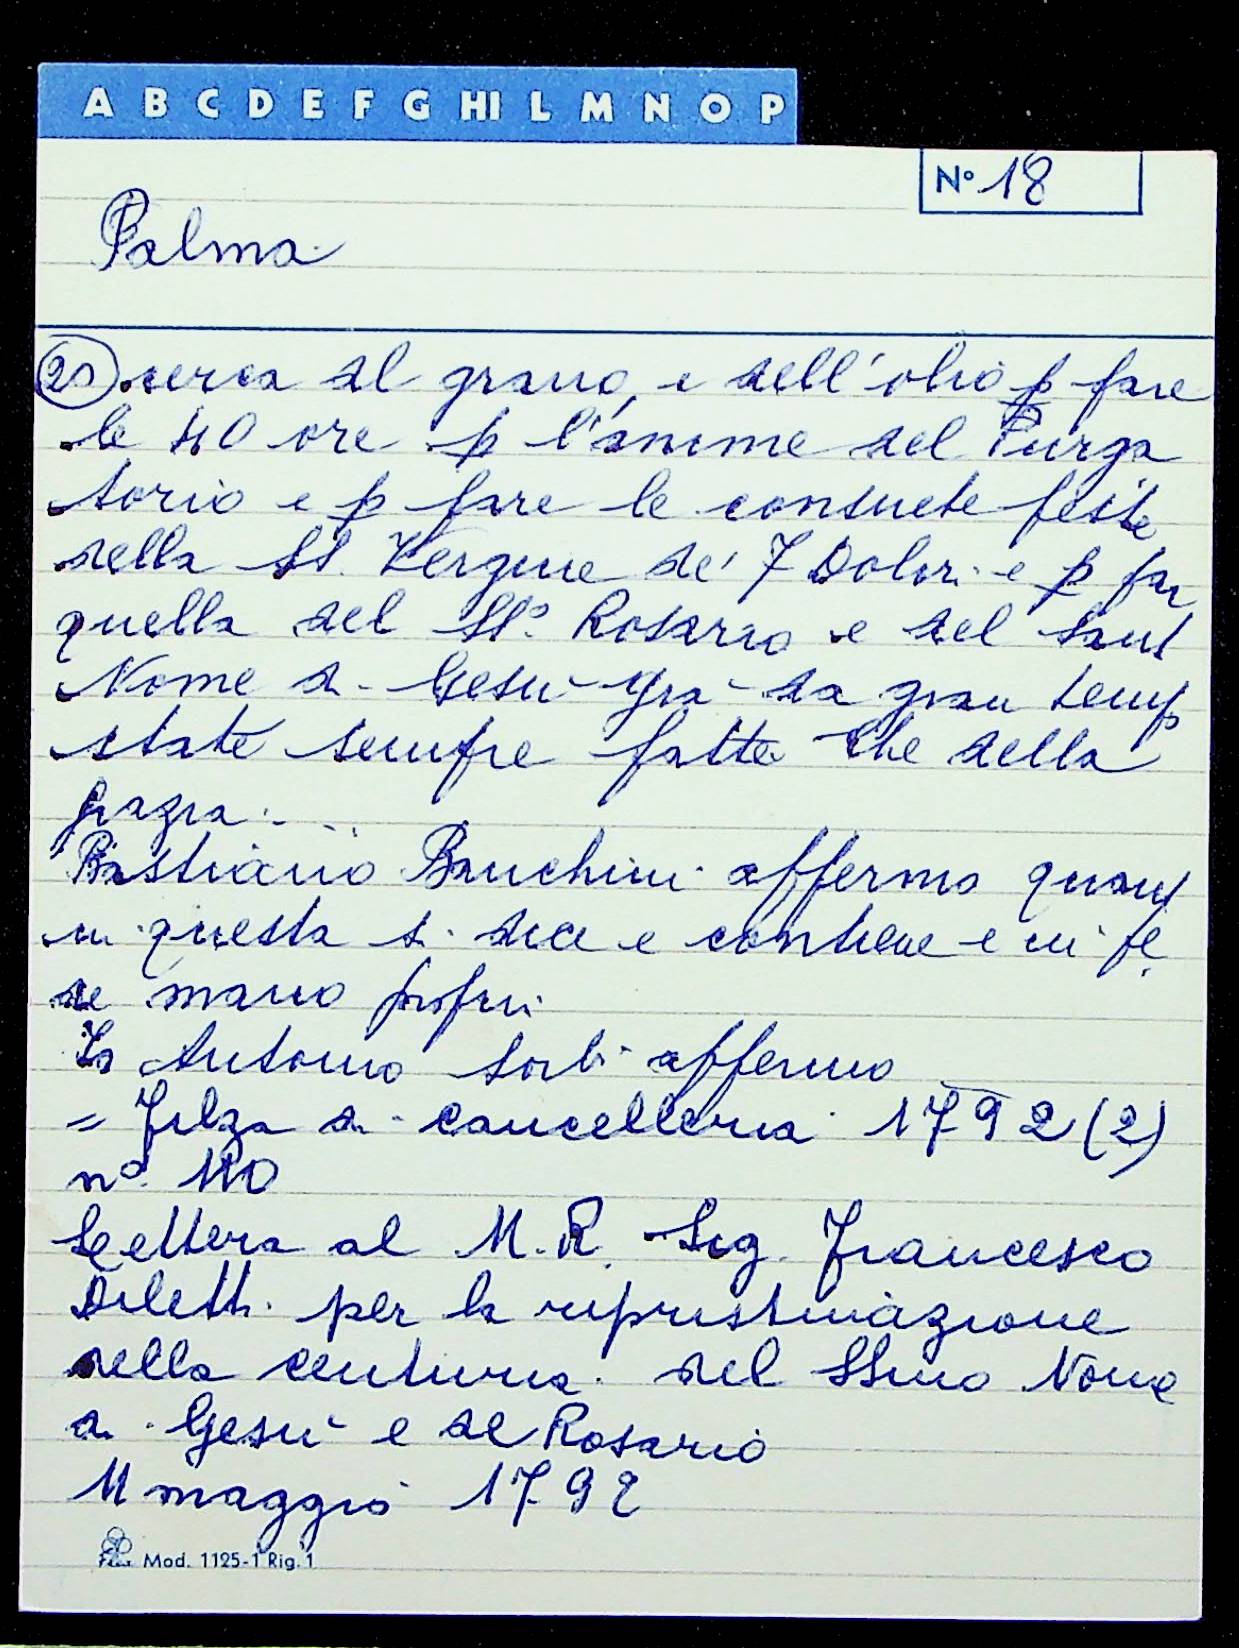 A B C D E F G HI L M N O P
N° 18
Palma
20 cerca al grano, e dell'olio p fare
le 40 ore p l'anime del Purga
torio e p fare le consuete feste
della SS. Vergine de' 7 Dolori e p far
quella del SS.º Rosario e del Sant
Nome di Gesù già da gran temp
state sempre fatte che della
grazia...
Bastiano Banchini affermo quant
in questa si dice e contiene e in fe
de mano propri
Io Antonio Sorbi affermo
= Filza di cancelleria 1792 (2)
nº. 110
Lettera al M.R. Sig. Francesco
Diletti per la ripristinazione
della centuria del SSmo Nome
di Gesù e del Rosario
11 maggio 1792
Mod. 1125-1 Rig. 1